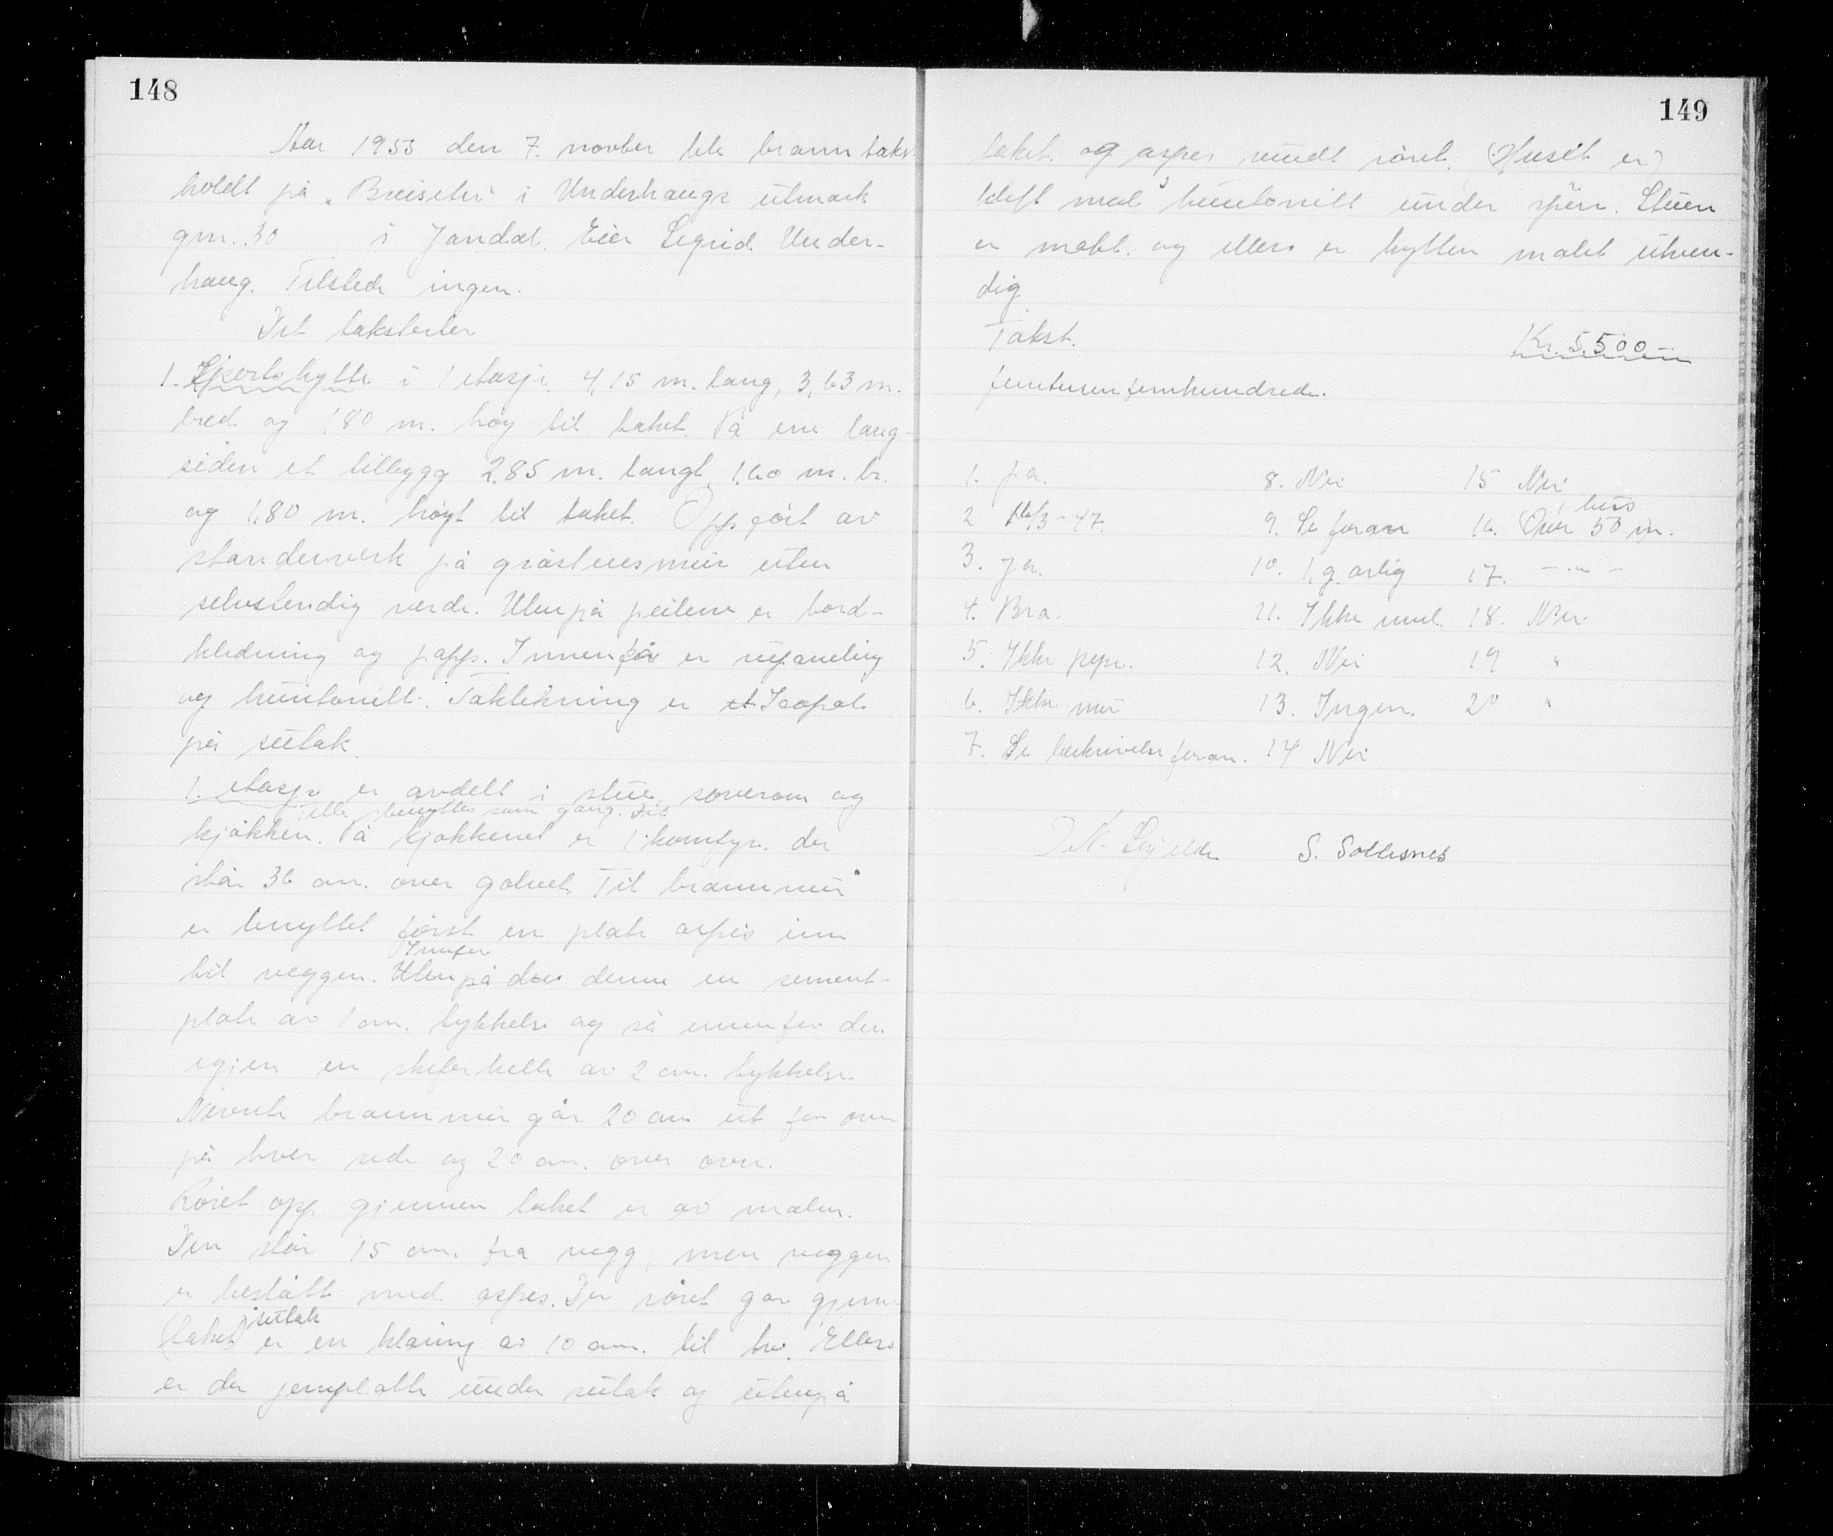 148
Aar 1953 den 7. novber ble branntakst
holdt på "Breiseter" i Underhaugs utmark
gnr. 30 i Jondal. Eier Sigrid Under-
haug. Tilstede ingen.
Det taksterter
1. Sportshytte i 1 etasje. 4,15 m. lang, 3,63 m.
bred og 1,80 m. høg til taket. På ene lang-
siden et tilbygg 2,85 m. langt 1,60 m. br.
og 1,80 m. høgt til taket. Oppført av
standerverk på gråsteinsmur uten
selvstendig verde. Utenpå peilene er bord-
kledning og papp. Innenpå er rupaneling
og huntonitt. Taktekning er et Icopal
på sutak.
1. etasje er avdelt i stue, soverom og
Tilb. benyttes som gang.
kjøkken. På kjøkkenet er 1 komfyr. der
står 36 cm. over golvet. Til brannmur
er benyttet først en plate aspes inn
Innfor
til veggen. Utenpå den denne en sement-
plate av 1 cm. tykkelse og så innenfor den
igjen en skiferhelle av 2 cm. tykkelse.
Nevnte brannmur går 20 cm ut for ovn
på hver side og 20 cm. over ovn.
Røret opp gjennem taket er av
Den står 15 cm. fra vegg, men veggen
er beslått med aspes. Der røret går gjenn
sutak
(taket) er en klaring av 10 cm. til tre. Ellers
er der jernplate under sutak og utenpå
149
taket og aspes rundt røret. (Huset er)
huntonitt under sperr. Stuen
er malt og ellers er hytten malet utven-
dig
Takst. Kr. 5.500.-
femtusenfemhundrede.
1. Ja. 8. Nei 15 Nei
hus
2 16/3-47. 9. Se foran 16. Over 50 m.
3. Ja. 10. 1 g. årlig 17. -"-
4. Bra. 11. Ikke mul. 18. Nei
5. Ikke pipe. 12. Nei 19 "
6. Ikke mur 13. Ingen. 20 "
7. Se beskrivelse foran. 14 Nei
S. Sollesnes